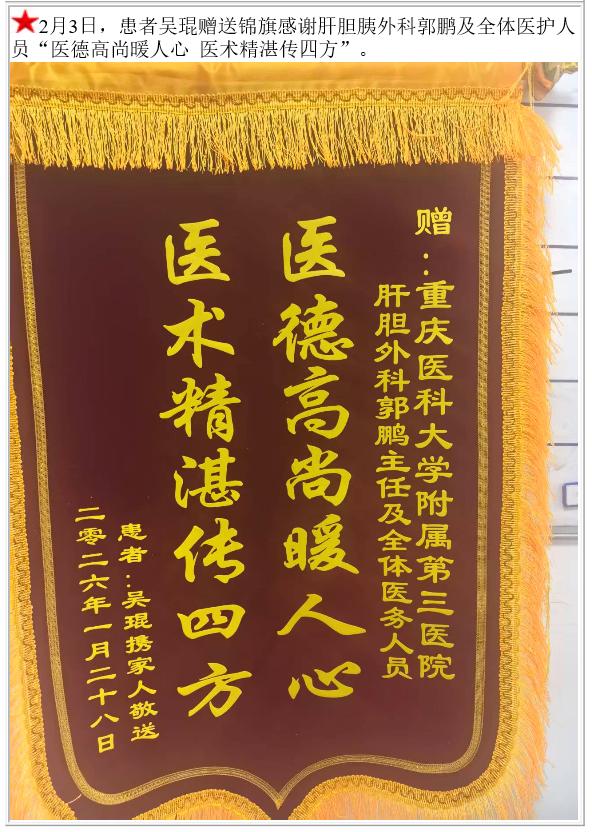 2月3日，患者吴琨赠送锦旗感谢肝胆胰外科郭鹏及全体医护人
员“医德高尚暖人心 医术精湛传四方”。
赠：重庆医科大学附属第三医院
肝胆外科郭鹏主任及全体医务人员
医德高尚暖人心
医术精湛传四方
患者：吴琨携家人敬送
二零二六年一月二十八日